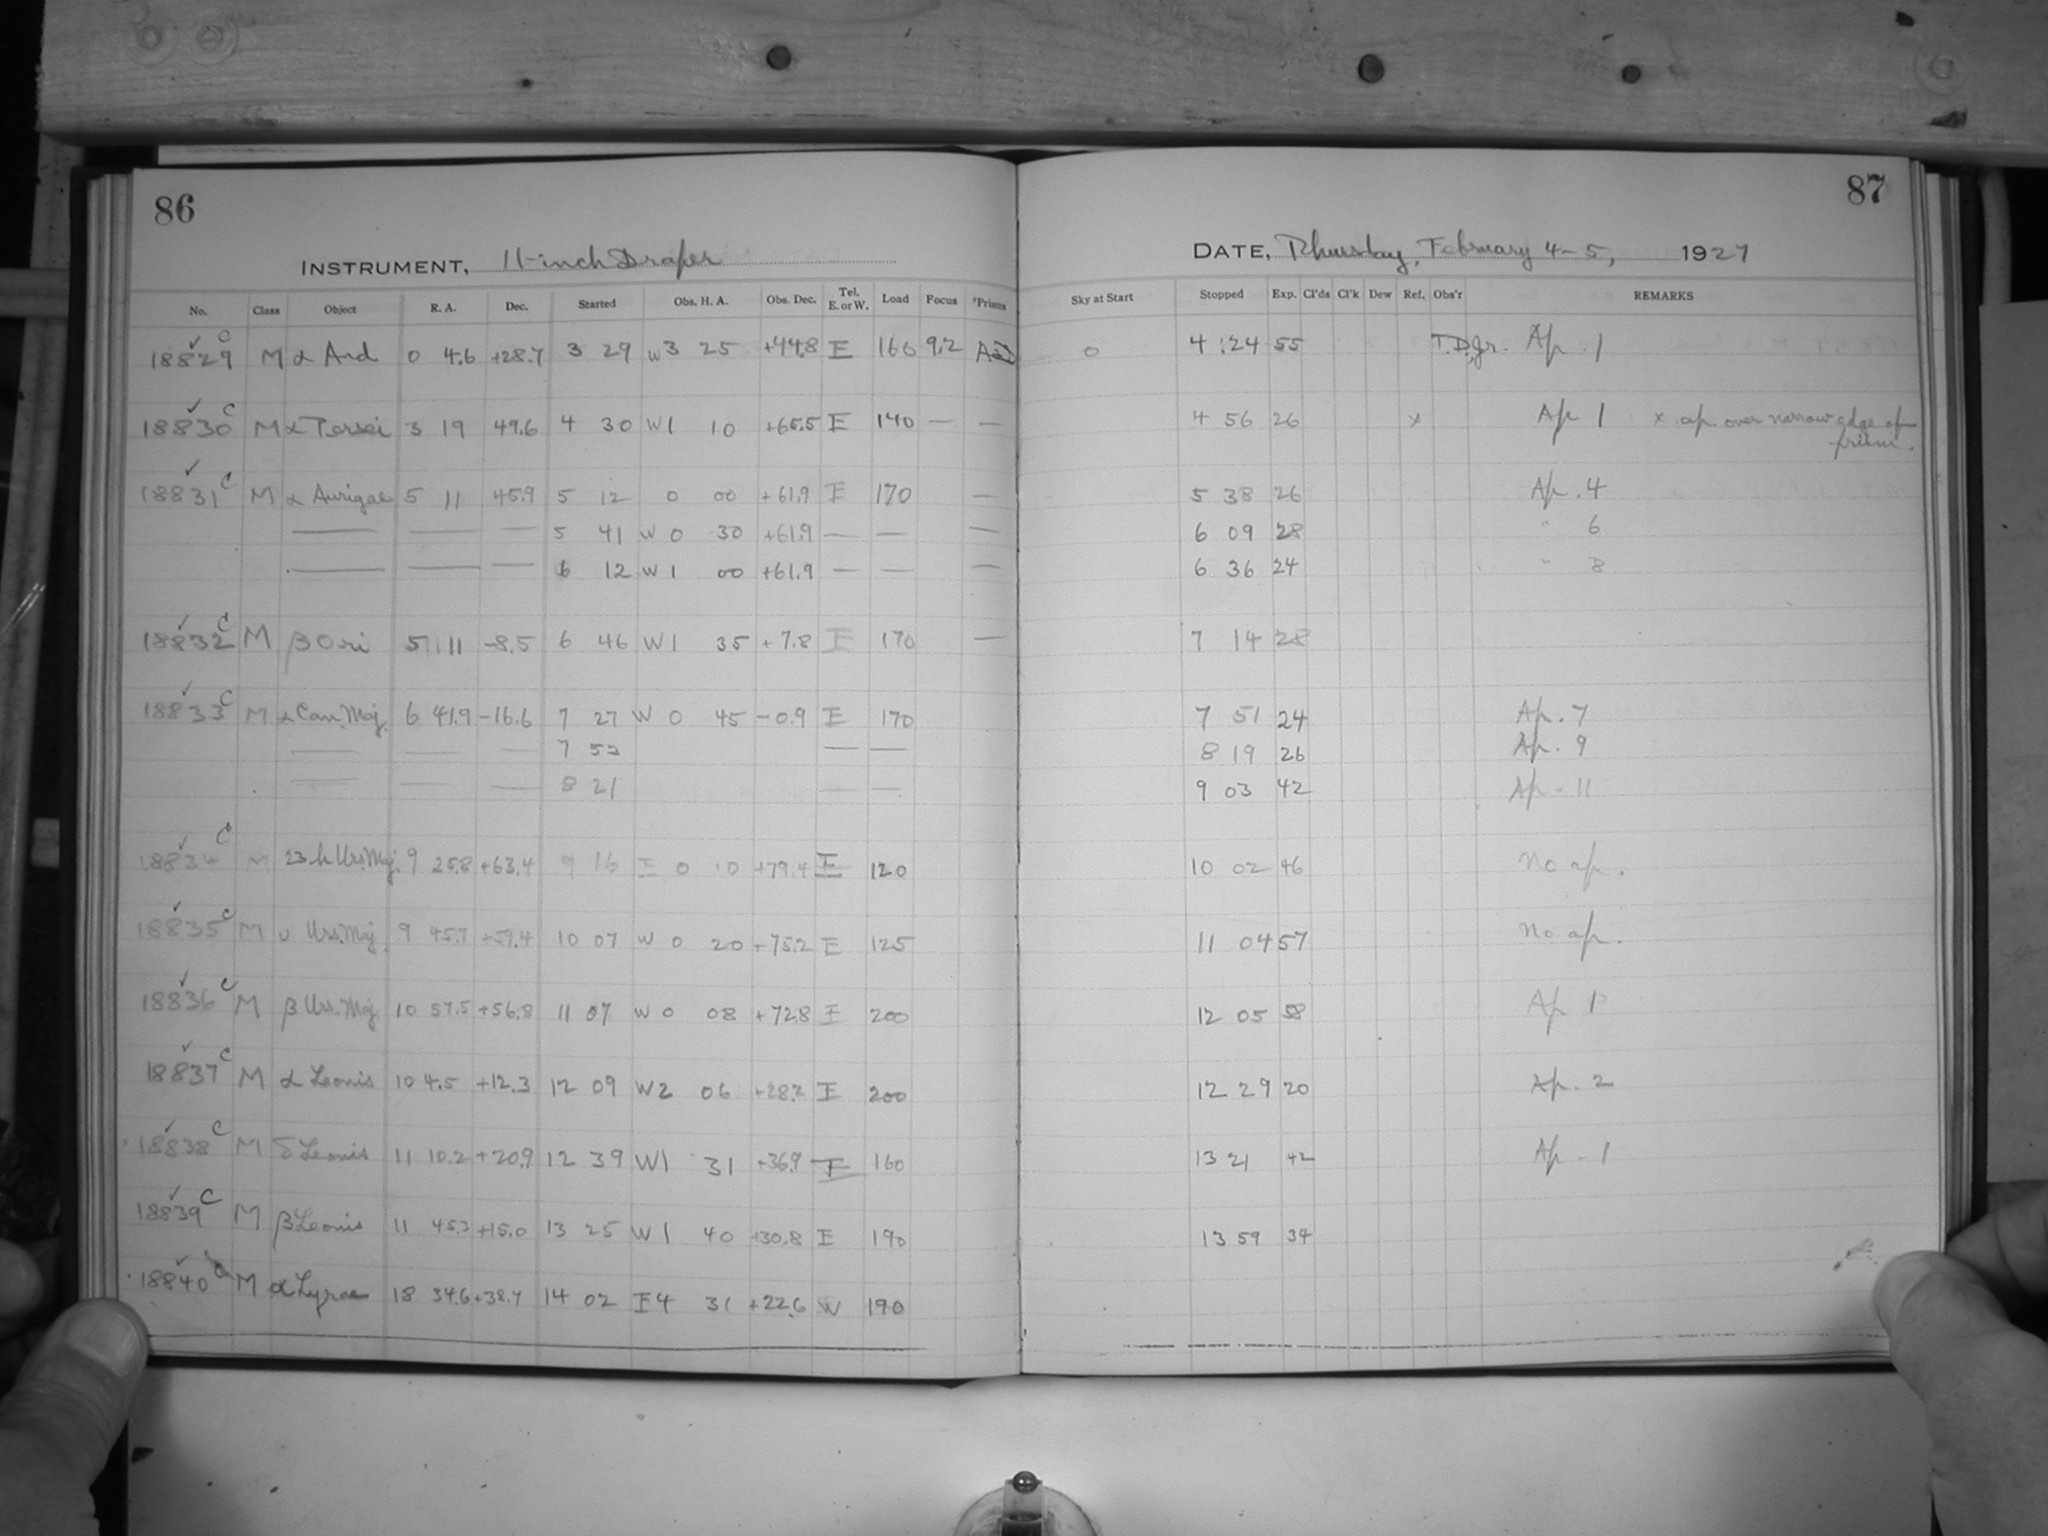 86
87
INSTRUMENT, 11-inch Draper
DATE, Thursday, February 4-5, 1927
No. Class Object R. A. Dec. Started Obs. H. A. Obs. Dec. Tel. E. or W. Load Focus Prisms Sky at Start Stopped Exp. Cl'ds Cl'k Dew Ref. Obs'r REMARKS
✓ 18829 C M α And 0 4.6 +28.7 3 29 W 3 25 +44.8 E 160 9.2 O 4:24 55 T.D.Jr. Ap. 1
✓ 18830 C M α Persei 3 19 49.6 4 30 W 1 10 +65.5 E 140 — — 4 56 26 x Ap 1 x ap. over narrow edge of
prism.
✓ 18831 C M α Aurigae 5 11 45.9 5 12 0 00 +61.9 E 170 — 5 38 26 Ap. 4
— — — 5 41 W 0 30 +61.9 — — — 6 09 28 " 6
— — — 6 12 W 1 00 +61.9 — — — 6 36 24 " 8
✓ 18832 C M β Ori 5 11 -8.5 6 46 W 1 35 +7.8 E 170 — 7 14 28
✓ 18833 C M α Can. Maj. 6 41.9 -16.6 7 27 W 0 45 -0.9 E 170 7 51 24 Ap. 7
— — — 7 53 — — 8 19 26 Ap. 9
— — — 8 21 — — 9 03 42 Ap. 11
✓ 18834 C M 23 h Urs. Maj. 9 25.8 +63.4 9 16 E 0 10 +79.4 E 120 10 02 46 No ap.
✓ 18835 C M υ Urs. Maj. 9 45.7 +59.4 10 07 W 0 20 +75.2 E 125 11 04 57 No ap.
✓ 18836 C M β Urs. Maj. 10 57.5 +56.8 11 07 W 0 08 +72.8 E 200 12 05 58 Ap 1
✓ 18837 C M α Leonis 10 4.5 +12.3 12 09 W 2 06 +28.2 E 200 12 29 20 Ap. 2
✓ 18838 C M δ Leonis 11 10.2 +20.9 12 39 W 1 31 +36.9 E 160 13 21 42 Ap. 1
✓ 18839 C M β Leonis 11 45.3 +15.0 13 25 W 1 40 +30.8 E 190 13 59 34
✓ 18840 M α Lyrae 18 34.6 +38.7 14 02 E 4 31 +22.6 W 190